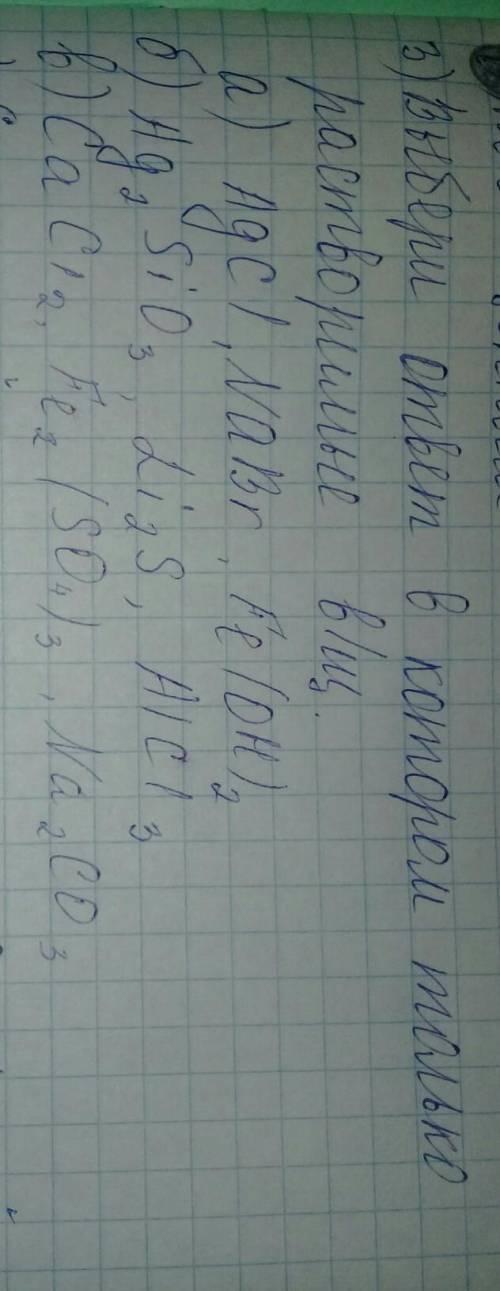 3) Выбери ответ в котором только
растворимые в/щ.
а) AgCl, NaBr, Fe(OH)2
б) Ag2 SiO3, Li2S, AlCl3
в) CaCl2, Fe2(SO4)3, Na2CO3